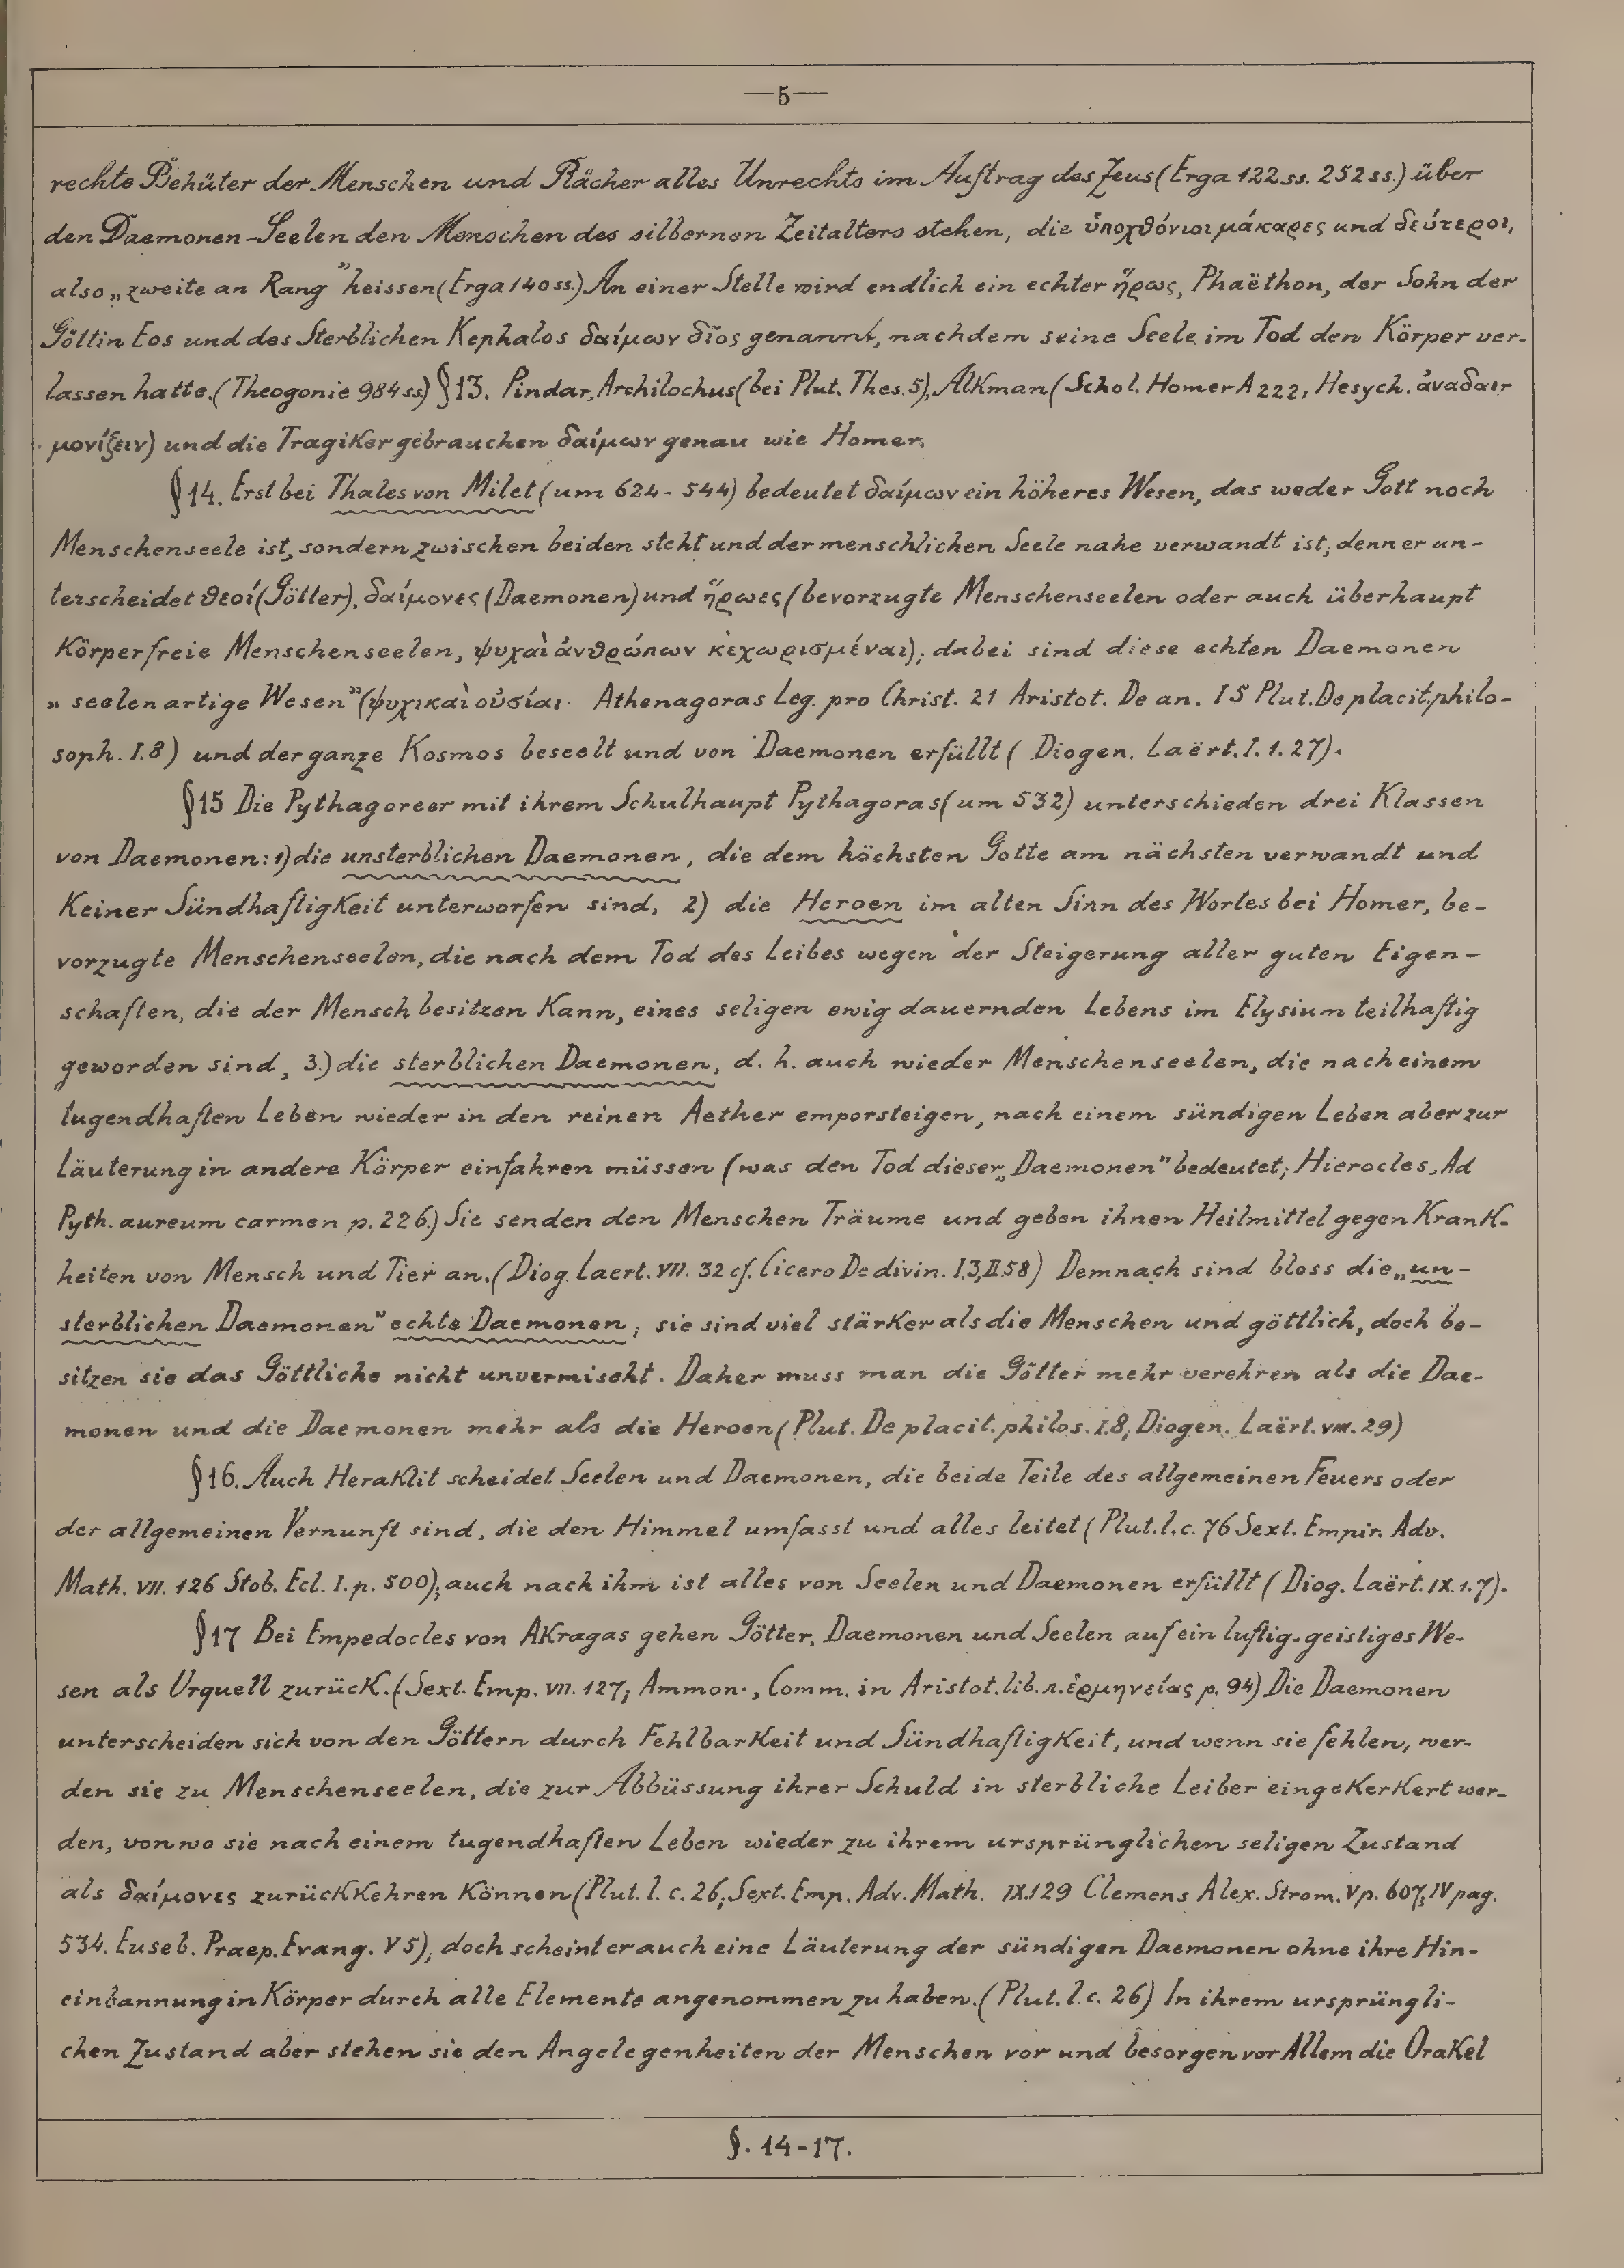 —5—
rechte Behüter der Menschen und Rächer alles Unrechts im Auftrag des Zeus (Erga 122 ss. 252 ss.) über
den Daemonen-Seelen den Menschen des silbernen Zeitalters stehen, die ὑποχθόνιοι μάκαρες und δεύτεροι,
also „zweite an Rang" heissen (Erga 140 ss.) An einer Stelle wird endlich ein echter ἥρως, Phaëthon, der Sohn der
Göttin Eos und des Sterblichen Kephalos δαίμων δῖος genannt, nachdem seine Seele im Tod den Körper ver-
lassen hatte. (Theogonie 984 ss) §13. Pindar, Archilochus (bei Plut. Thes. 5), Alkman (Schol. Homer A 222, Hesych. ἀναδαι-
μονίζειν) und die Tragiker gebrauchen δαίμων genau wie Homer.
§14. Erst bei Thales von Milet (um 624 - 544) bedeutet δαίμων ein höheres Wesen, das weder Gott noch
Menschenseele ist, sondern zwischen beiden steht und der menschlichen Seele nahe verwandt ist; denn er un-
terscheidet θεοί (Götter), δαίμονες (Daemonen) und ἥρωες (bevorzugte Menschenseelen oder auch überhaupt
Körperfreie Menschenseelen, ψυχαὶ ἀνθρώπων κεχωρισμέναι); dabei sind diese echten Daemonen
„seelenartige Wesen" (ψυχικαὶ οὐσίαι Athenagoras Leg. pro Christ. 21 Aristot. De an. I 5 Plut. De placit. philo-
soph. I. 8) und der ganze Kosmos beseelt und von Daemonen erfüllt ( Diogen. Laërt. I. 1. 27).
§15 Die Pythagoreer mit ihrem Schulhaupt Pythagoras (um 532) unterschieden drei Klassen
von Daemonen: 1) die unsterblichen Daemonen, die dem höchsten Gotte am nächsten verwandt und
Keiner Sündhaftigkeit unterworfen sind, 2) die Heroen im alten Sinn des Wortes bei Homer, be-
vorzugte Menschenseelen, die nach dem Tod des Leibes wegen der Steigerung aller guten Eigen-
schaften, die der Mensch besitzen Kann, eines seligen ewig dauernden Lebens im Elysium teilhaftig
geworden sind, 3.) die sterblichen Daemonen, d. h. auch wieder Menschenseelen, die nach einem
tugendhaften Leben wieder in den reinen Aether emporsteigen, nach einem sündigen Leben aber zur
Läuterung in andere Körper einfahren müssen (was den Tod dieser „Daemonen" bedeutet; Hierocles, Ad
Pyth. aureum carmen p. 226.) Sie senden den Menschen Träume und geben ihnen Heilmittel gegen Krank-
heiten von Mensch und Tier an. (Diog. Laert. VII. 32 cf. Cicero De divin. I.3, II.58) Demnach sind bloss die „un-
sterblichen Daemonen" echte Daemonen; sie sind viel stärker als die Menschen und göttlich, doch be-
sitzen sie das Göttliche nicht unvermischt. Daher muss man die Götter mehr verehren als die Dae-
monen und die Daemonen mehr als die Heroen (Plut. De placit. philos. I.8; Diogen. Laërt. VIII. 29)
§16. Auch Heraklit scheidet Seelen und Daemonen, die beide Teile des allgemeinen Feuers oder
der allgemeinen Vernunft sind, die den Himmel umfasst und alles leitet (Plut. l. c. 76 Sext. Empir. Adv.
Math. VII. 126 Stob. Ecl. I. p. 500); auch nach ihm ist alles von Seelen und Daemonen erfüllt ( Diog. Laërt. IX. 1. 7).
§17 Bei Empedocles von Akragas gehen Götter, Daemonen und Seelen auf ein luftig-geistiges We-
sen als Urquell zurück. (Sext. Emp. VII. 127; Ammon., Comm. in Aristot. lib. π. ἑρμηνείας p. 94) Die Daemonen
unterscheiden sich von den Göttern durch Fehlbarkeit und Sündhaftigkeit, und wenn sie fehlen, wer-
den sie zu Menschenseelen, die zur Abbüssung ihrer Schuld in sterbliche Leiber eingekerkert wer-
den, von wo sie nach einem tugendhaften Leben wieder zu ihrem ursprünglichen seligen Zustand
als δαίμονες zurückkehren können (Plut. l. c. 26; Sext. Emp. Adv. Math. IX.129 Clemens Alex. Strom. V p. 607, IV pag.
534. Euseb. Praep. Evang. V 5); doch scheint er auch eine Läuterung der sündigen Daemonen ohne ihre Hin-
einbannung in Körper durch alle Elemente angenommen zu haben. (Plut. l. c. 26) In ihrem ursprüngli-
chen Zustand aber stehen sie den Angelegenheiten der Menschen vor und besorgen vor Allem die Orakel
§. 14-17.